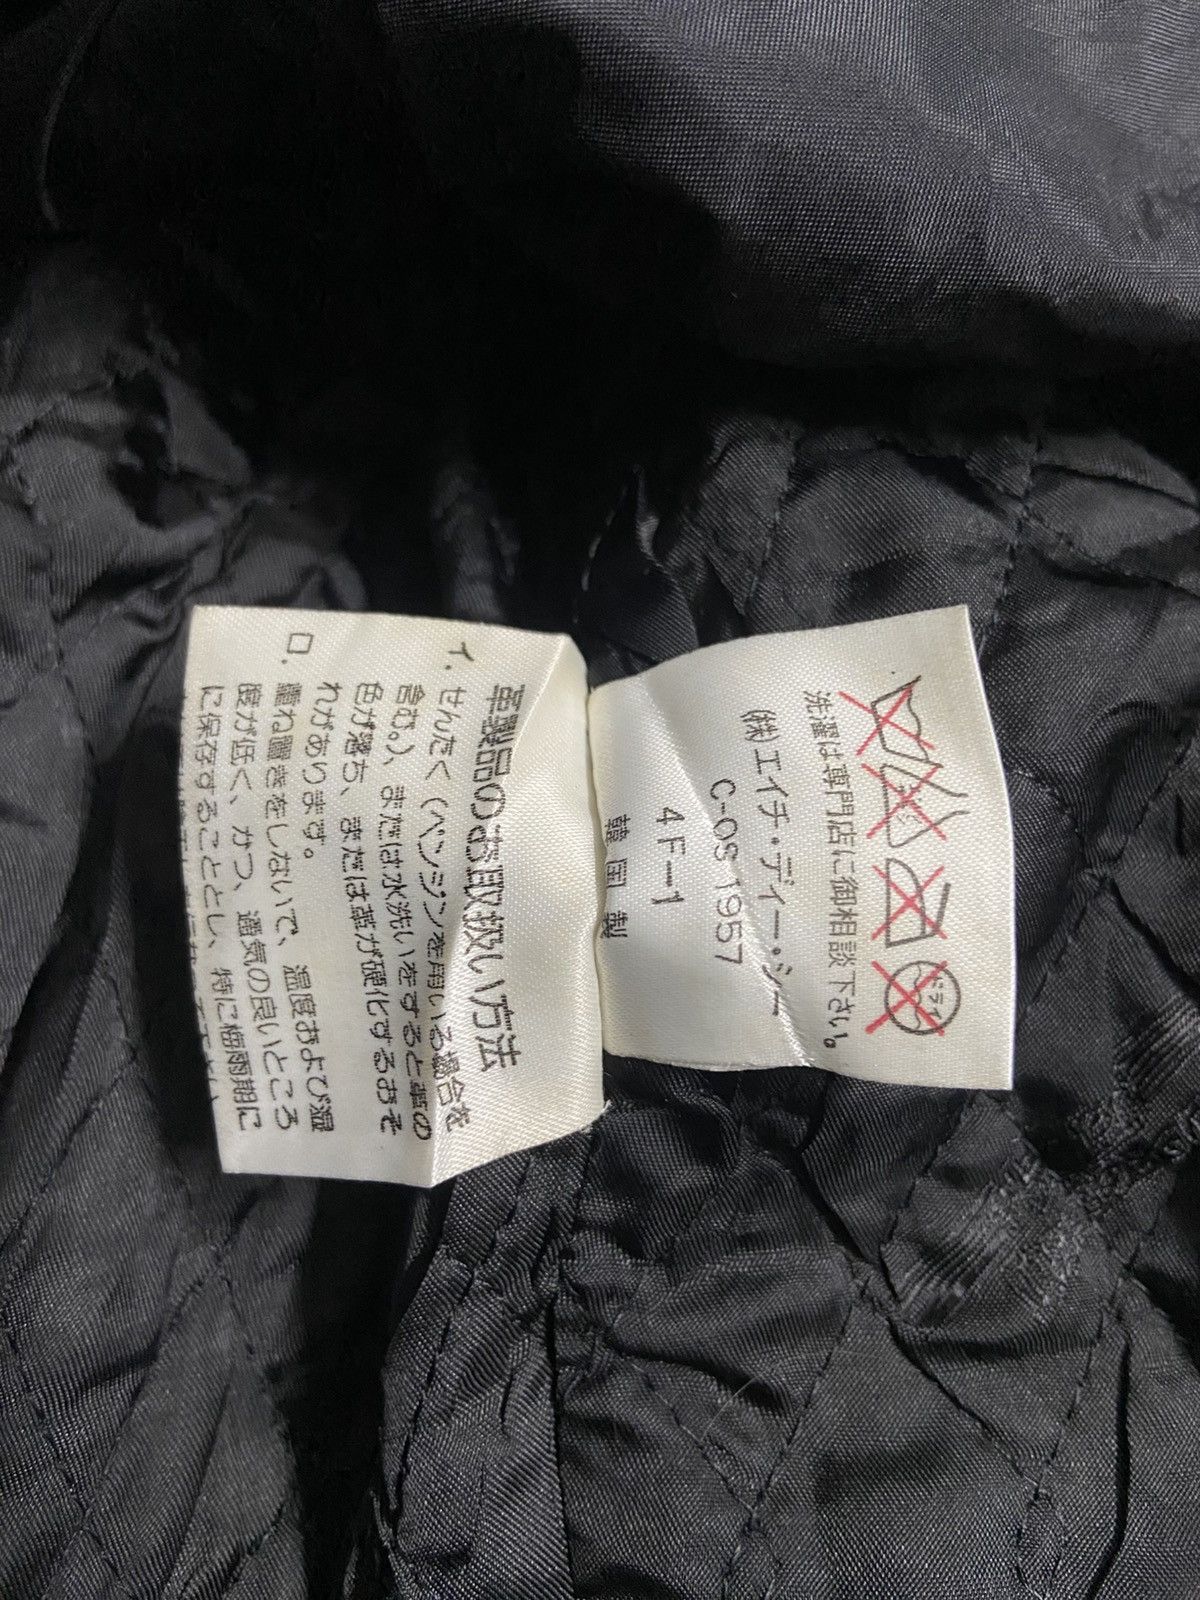 革製品のお取扱い方法
イ. せんたく(ベンジンを用いる場合を
含む。)、または水洗いをすると革の
色が落ち、または革が硬化するおそ
れがあります。
ロ. 重ね置きをしないで、温度および湿
度が低く、かつ、通気の良いところ
に保存することとし、特に梅雨期に
ドライ
洗濯は専門店に御相談下さい。
㈱エイチ・ディー・シー
C-OS1957
4F-1
韓国製